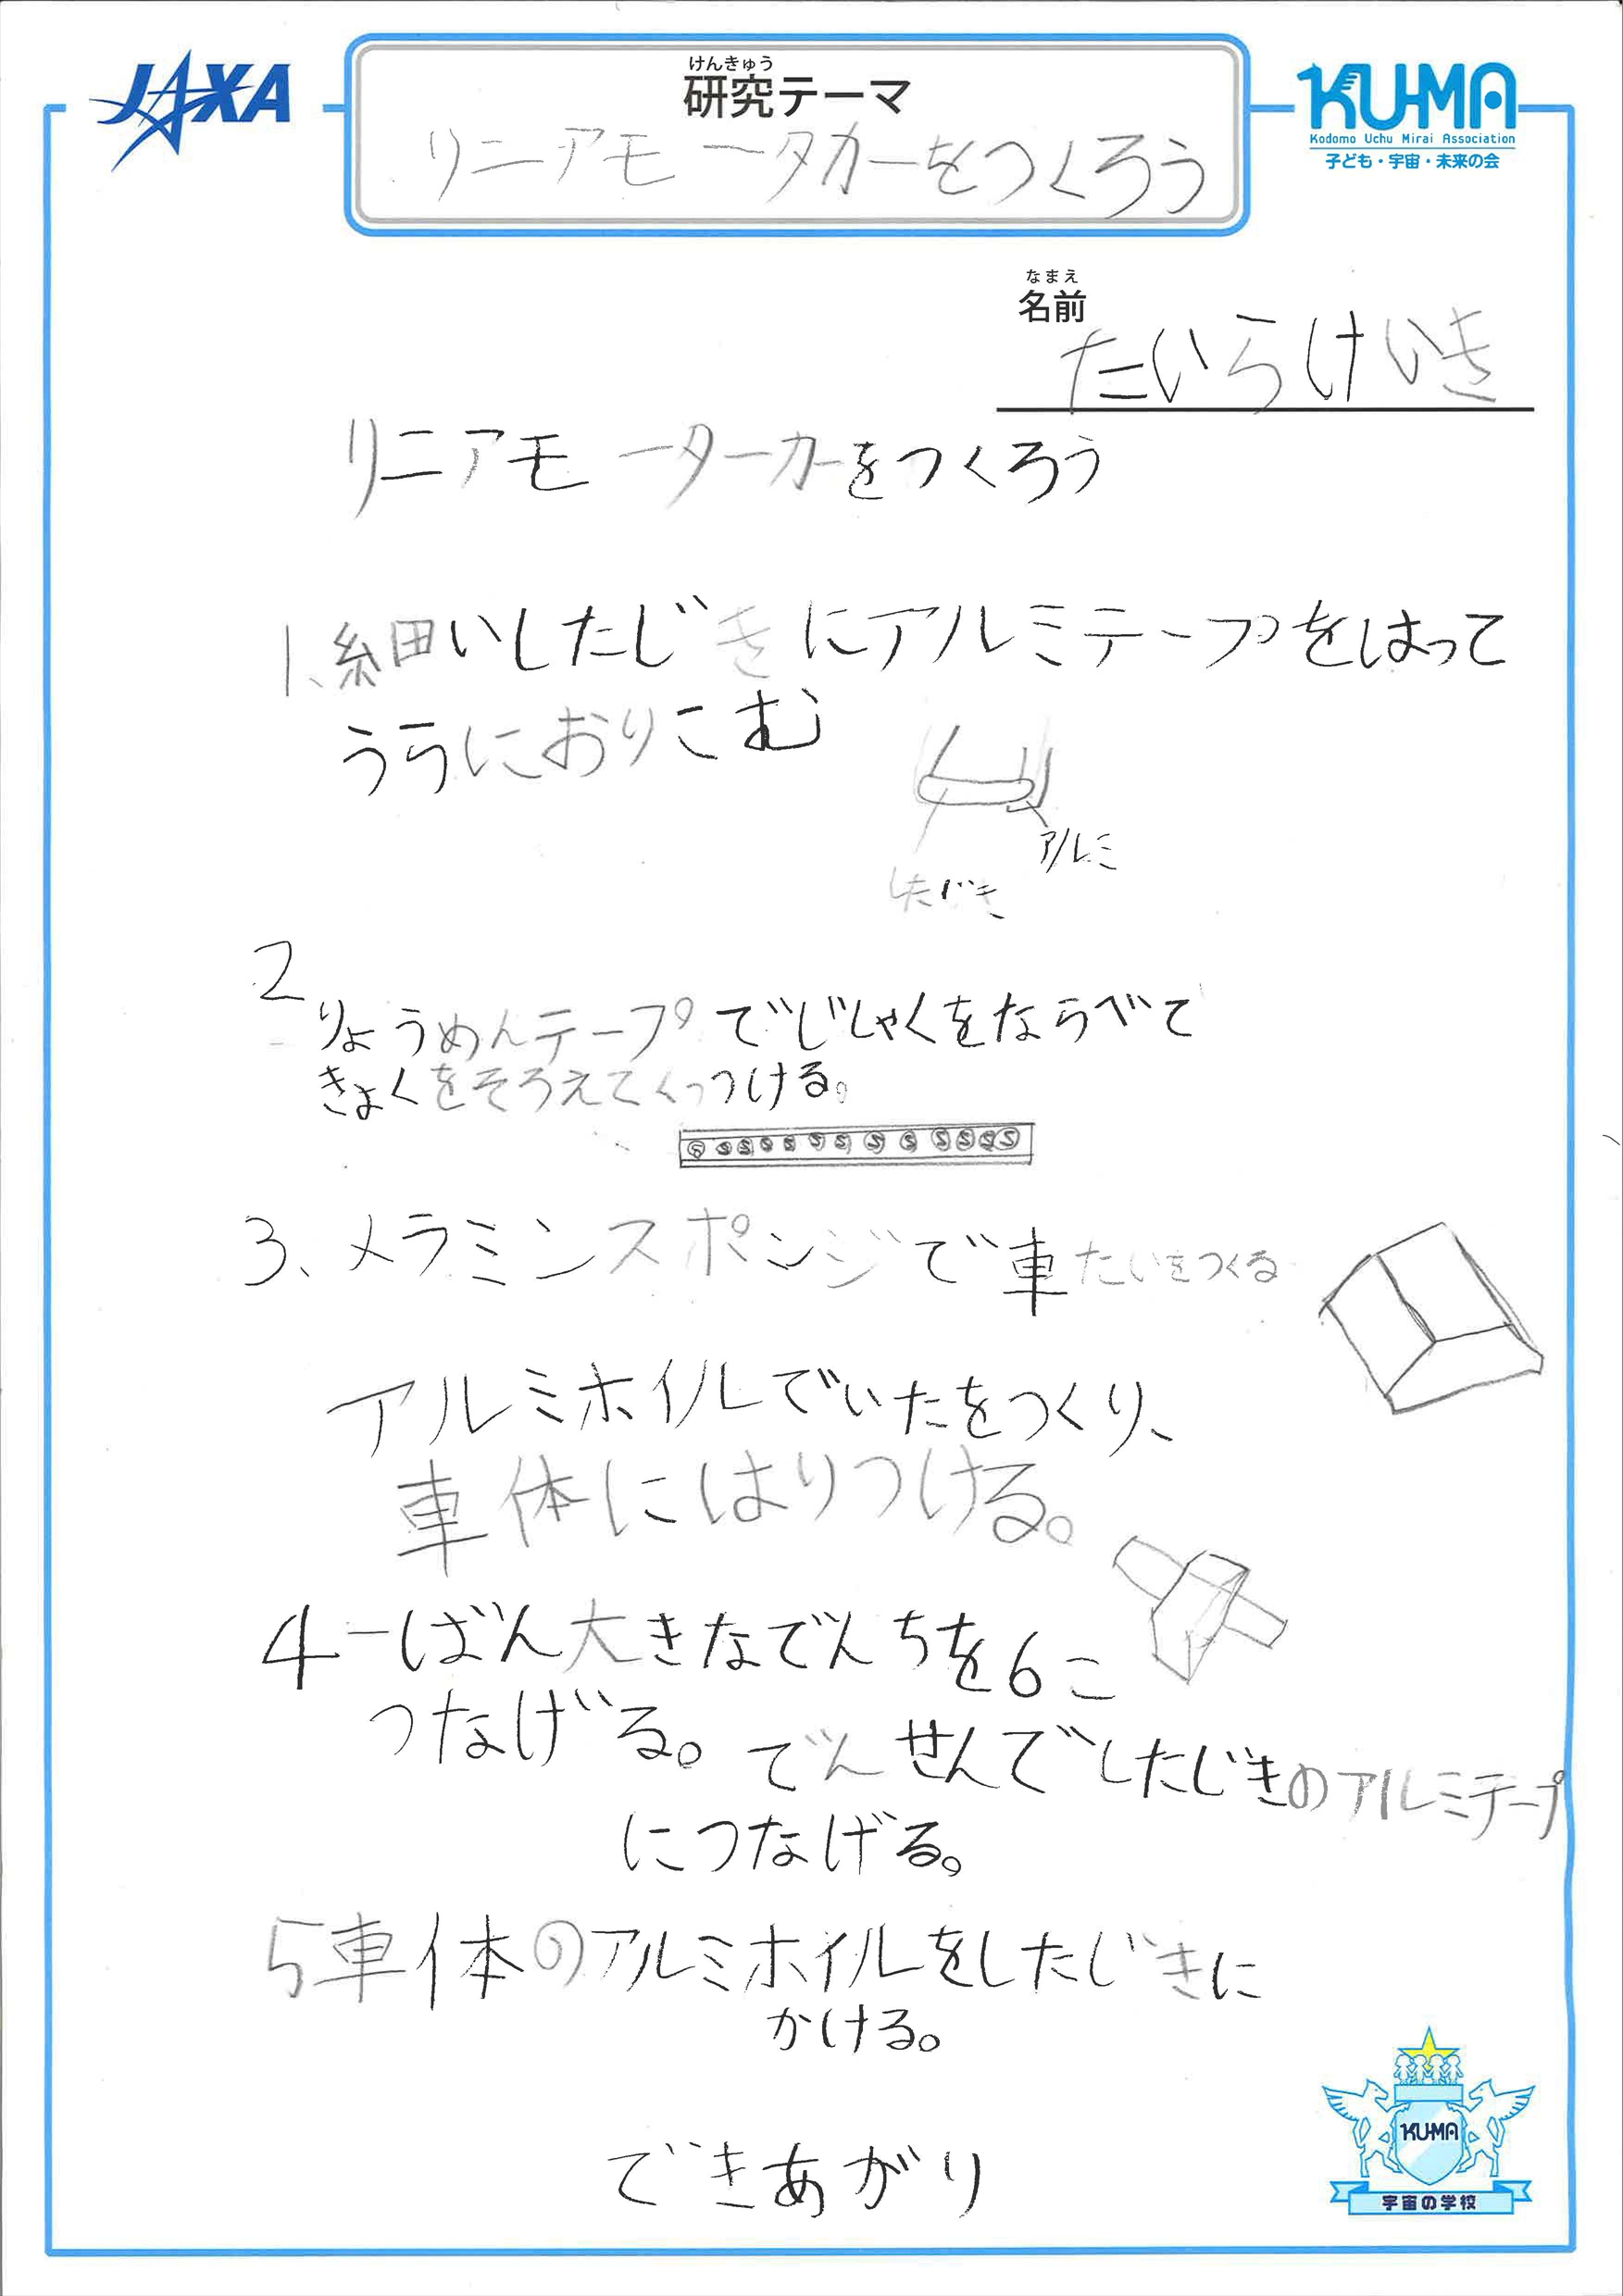 JAXA
けんきゅう
研究テーマ
リニアモータカーをつくろう
KU-MA
Kodomo Uchu Mirai Association
子ども・宇宙・未来の会
なまえ
名前
たいらけいき
リニアモーターカーをつくろう
1、細いしたじきにアルミテープをはって
うらにおりこむ
アルミ
したじき
2
りょうめんテープでじしゃくをならべて
きょくをそろえてくっつける。
S S S S S S S S S S S S S
3、メラミンスポンジで車たいをつくる
アルミホイルでいたをつくり、
車体にはりつける。
4 一ばん大きなでんちを6こ
つなげる。でんせんでしたじきのアルミテープ
につなげる。
5 車体のアルミホイルをしたじきに
かける。
できあがり
KU-MA
宇宙の学校